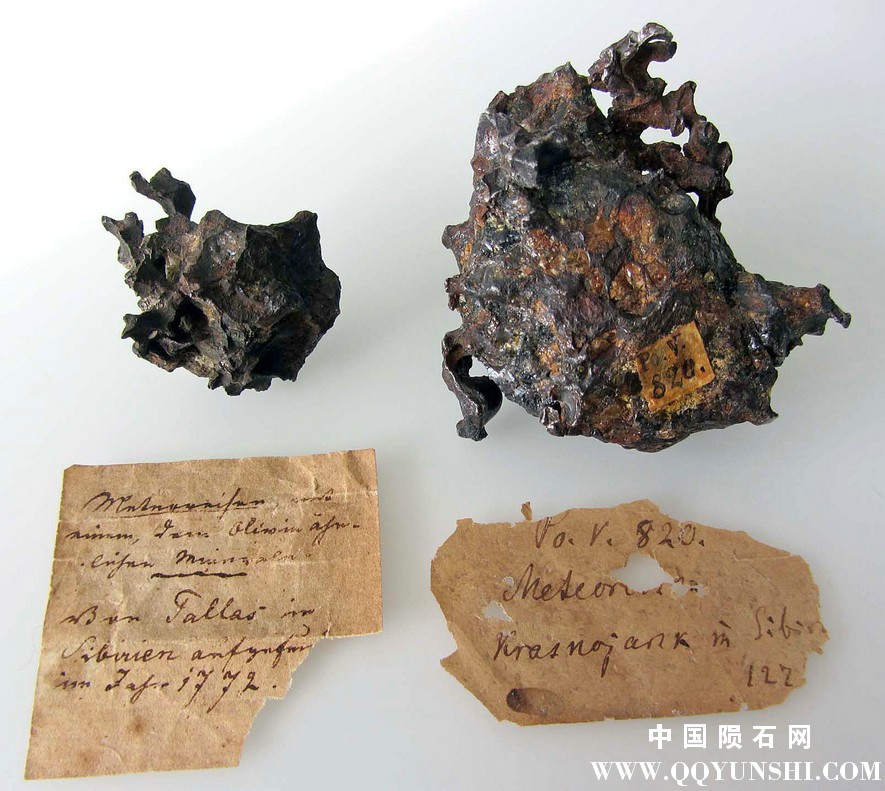 Po. V.
820.
Meteoreisen mit
einem, dem Olivin ähn-
lichen Minerale.
Von Pallas in
Sibirien aufgefun
im Jahr 1772.
Po. V. 820.
Meteor
Krasnojarsk in Sibir
122
中国陨石网
WWW.QQYUNSHI.COM